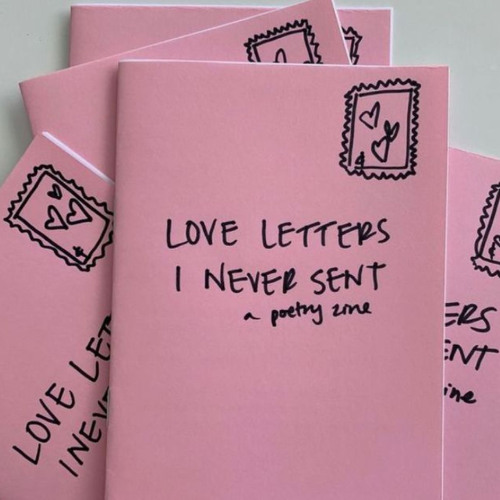 LOVE LETTERS
I NEVER SENT
a poetry zine
LOVE LET
I NEVE
ERS
ENT
ine